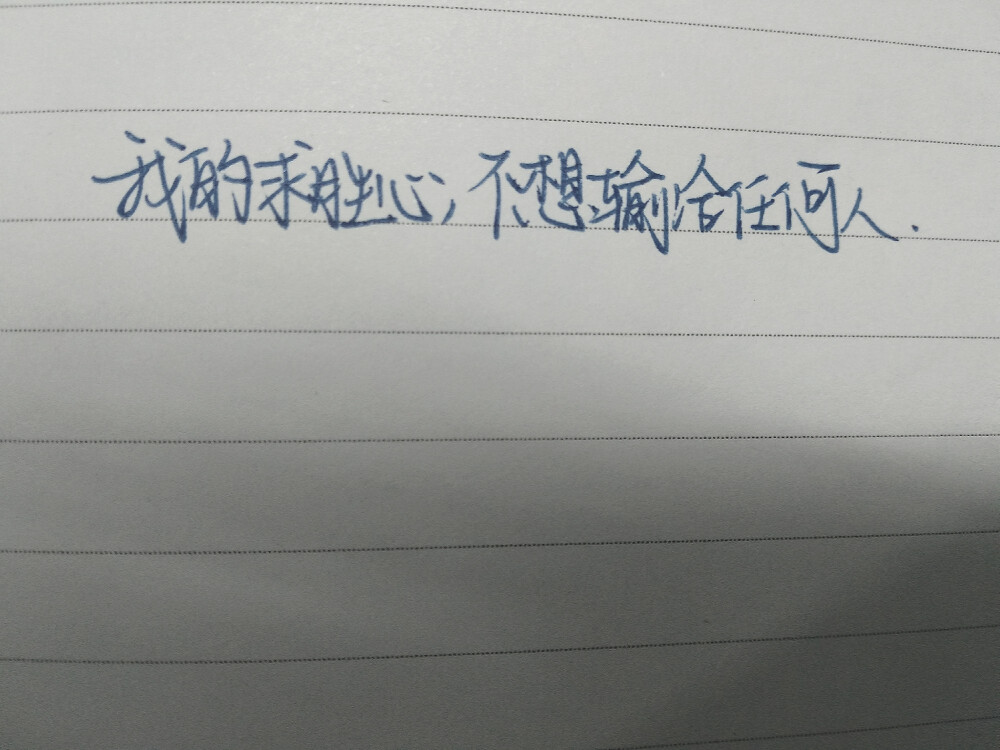 我的求胜心,不想输给任何人.